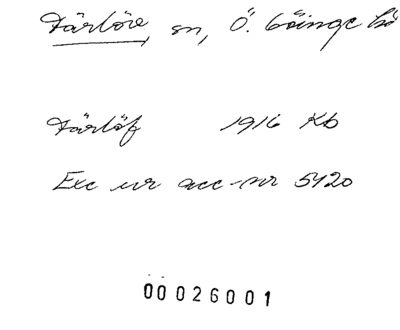 Färlöve, sn, Ö. Göinge hd
Färlöf 1916 Kb
Exc ur acc-nr 5420
00026001